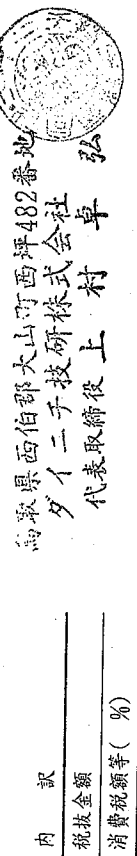 鳥取県西伯郡大山町西坪482番地
ダイニチ技研株式会社
代表取締役 上村卓弘
内訳
税抜金額
消費税額等( %)